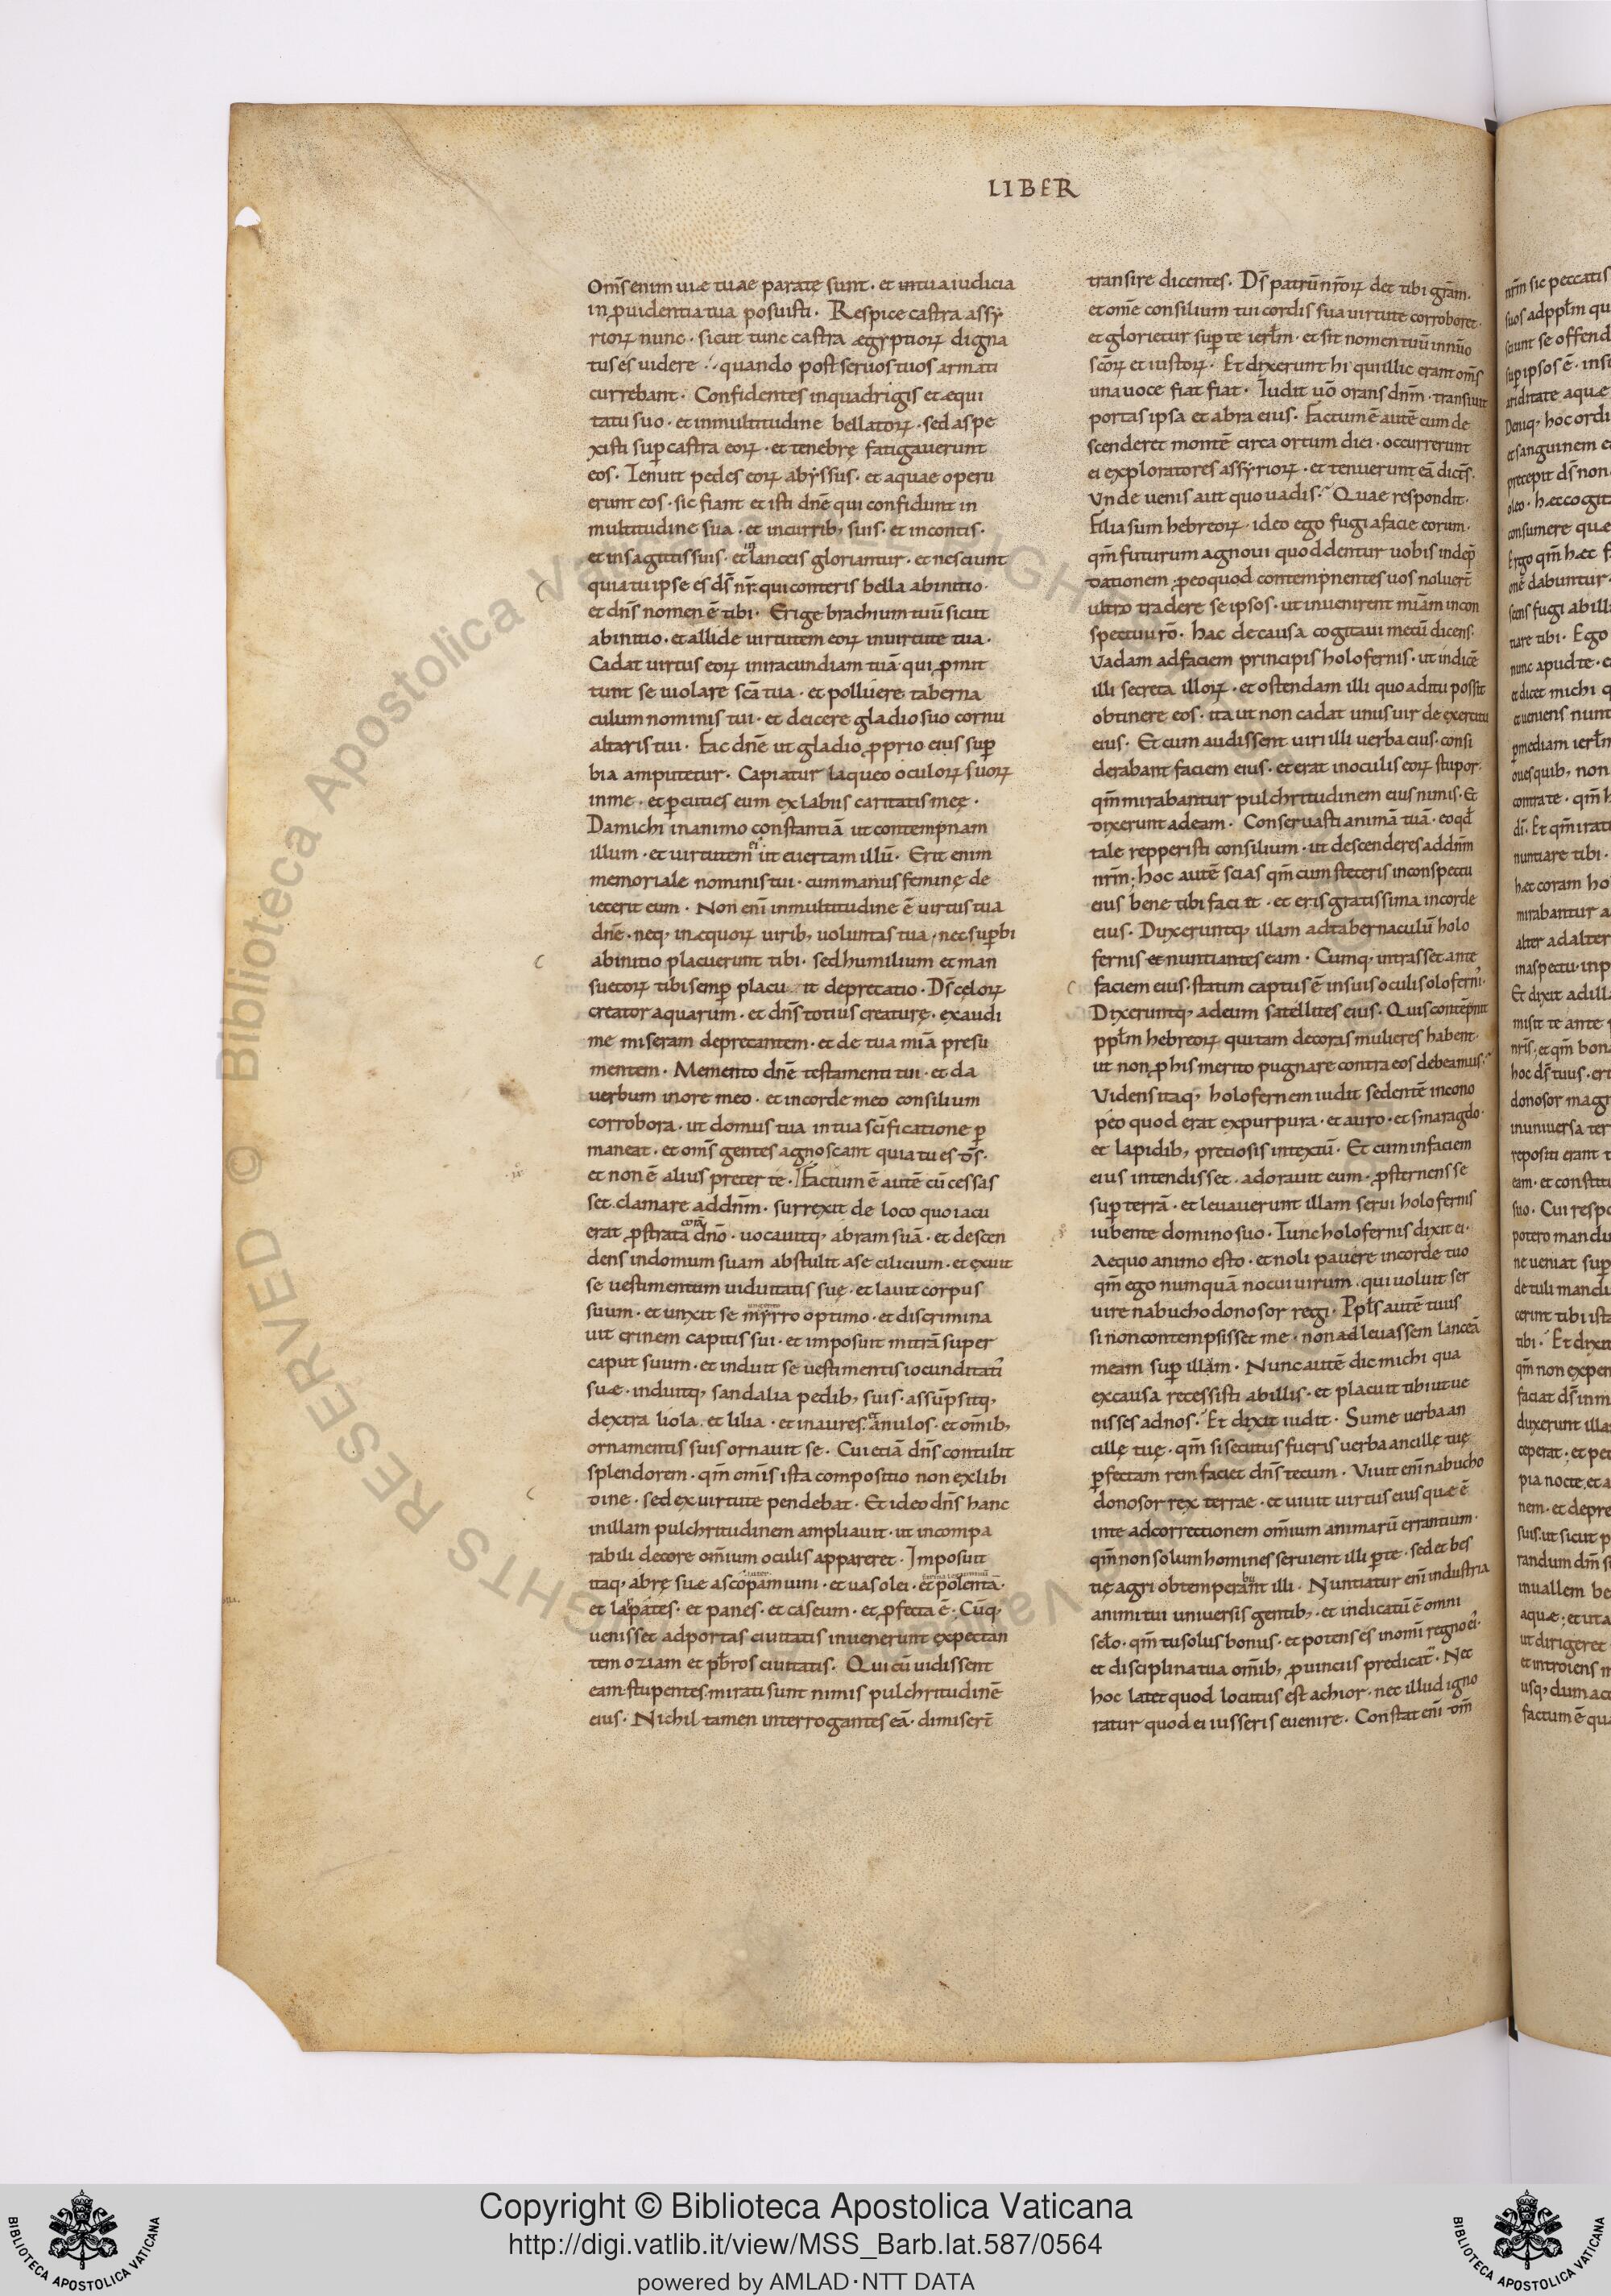 LIBER
Om̄s enim uiæ tuae paratę sunt · et in tua iudicia
in ꝓuidentia tua posuisti · Respice castra assy
rioꝝ nunc · sicut tunc castra ægyptioꝝ digna
tus es uidere · quando post seruos tuos armati
currebant · Confidentes in quadrigis et æqui
tatu suo · et in multitudine bellatoꝝ · sed aspe
xisti suꝑ castra eoꝝ · et tenebrę fatigauerunt
eos · Tenuit pedes eoꝝ abyssus · et aquae operu
erunt eos · sic fiant et isti dn̄e qui confidunt in
multitudine sua · et in currib; suis · et in contis ·
et in sagittis suis · et in lanceis gloriantur · et nesciunt
quia tu ipse es ds̄ nr̄ · qui conteris bella ab initio ·
et dn̄s nomen ē tibi · Erige brachium tuū sicut
ab initio · et allide uirtutem eoꝝ in uirtute tua ·
Cadat uirtus eoꝝ in iracundiam tuā qui ꝓmit
tunt se uiolare sc̄a tua · et polluere taberna
culum nominis tui · et deicere gladio suo cornu
altaris tui · Fac dn̄e ut gladio ꝓprio eius suꝑ
bia amputetur · Capiatur laqueo oculoꝝ suoꝝ
in me · et ꝑcuties eum ex labiis caritatis meę ·
Da michi in animo constantiā ut contempnam
illum · et uirtutem ut euertam illū · Erit enim
memoriale nominis tui · cum manus feminę de
iecerit eum · Non enī in multitudine ē uirtus tua
dn̄e · neq; in æquoꝝ uirib; uoluntas tua · nec suꝑbi
ab initio placuerunt tibi · sed humilium et man
suetoꝝ tibi semꝑ placuit deprecatio · Ds̄ cęloꝝ
creator aquarum · et dn̄s totius creaturę · exaudi
me miseram deprecantem · et de tua mīa presu
mentem · Memento dn̄e testamenti tui · et da
uerbum in ore meo · et in corde meo consilium
corrobora · ut domus tua in tua sc̄ificatione ꝑ
maneat · et om̄s gentes agnoscant quia tu es ds̄ ·
et non ē alius preter te · Factum ē autē cū cessas
set clamare ad dn̄m · surrexit de loco quo iacu
erat ꝓstrata corā dn̄o · uocauitq; abram suā · et descen
dens in domum suam abstulit a se cilicium · et exuit
se uestimentum uiduitatis suę · et lauit corpus
suum · et unxit se myrro optimo · et discrimina
uit crinem capitis sui · et imposuit mitrā super
caput suum · et induit se uestimentis iocunditatī
suæ · induitq; sandalia pedib; suis · assūpsitq;
dextra liola · et lilia · et inaures · et anulos · et om̄ib;
ornamentis suis ornauit se · Cui etiā dn̄s contulit
splendorem · qm̄ om̄is ista compositio non ex libi
dine · sed ex uirtute pendebat · Et ideo dn̄s hanc
in illam pulchritudinem ampliauit · ut incompa
rabili decore om̄ium oculis appareret · Imposuit
itaq; abrę suæ ascopam uini · et uas olei · et polentā ·
et lapates · et panes · et caseum · et ꝓfecta ē · Cūq;
uenisset ad portas ciuitatis inuenerunt expectan
tem oziam et pb̄ros ciuitatis · Qui cū uidissent
eam stupentes mirati sunt nimis pulchritudinē
eius · Nichil tamen interrogantes eā · dimiser̄t
transire dicentes · Ds̄ patrū nr̄oꝝ det tibi gr̄am ·
et om̄e consilium tui cordis sua uirtute corroboret ·
et glorietur suꝑ te ierl̄m · et sit nomen tuū in nūo
sc̄oꝝ et iustoꝝ · Et dixerunt hi qui illic erant om̄s
una uoce fiat fiat · Iudit uō orans dn̄m · transiuit
portas ipsa et abra eius · Factum ē autē cum de
scenderet montē circa ortum diei · occurrerunt
ei exploratores assyrioꝝ · et tenuerunt eā dicēs ·
Vnde uenis aut quo uadis · Quae respondit ·
Filia sum hebreoꝝ · ideo ego fugi a facie eorum ·
qm̄ futurum agnoui quod dentur uobis in depͣ
dationem · ꝓ eo quod contempnentes uos noluer̄t
ultro tradere se ipsos · ut inuenirent mīam in con
spectu ur̄o · hac de causa cogitaui mecū dicens ·
Vadam ad faciem principis holofernis · ut indicē
illi secreta illoꝝ · et ostendam illi quo aditu possit
obtinere eos · ita ut non cadat unus uir de exercitu
eius · Et cum audissent uiri illi uerba eius · consi
derabant faciem eius · et erat in oculis eoꝝ stupor ·
qm̄ mirabantur pulchritudinem eius nimis · Et
dixerunt ad eam · Conseruasti animā tuā · eo qd̄
tale repperisti consilium · ut descenderes ad dn̄m
nr̄m · hoc autē scias qm̄ cum steteris in conspectu
eius bene tibi faciet · et eris gratissima in corde
eius · Duxeruntq; illam ad tabernaculū holo
fernis et nuntiantes eam · Cumq; intrasset ante
faciem eius · statim captus ē in suis oculis olofernī ·
Dixeruntq; ad eum satellites eius · Quis contēpnit
ppl̄m hebreoꝝ qui tam decoras mulieres habent ·
ut non ꝓ his merito pugnare contra eos debeamus ·
Videns itaq; holofernem iudit sedentē in cono
peo quod erat ex purpura · et auro · et smaragdo ·
et lapidib; pretiosis intextū · Et cum in faciem
eius intendisset · adorauit eum · ꝓsternens se
suꝑ terrā · et leuauerunt illam serui holofernis
iubente domino suo · Tunc holofernis dixit ei ·
Aequo animo esto · et noli pauere in corde tuo
qm̄ ego numquā nocui uirum · qui uoluit ser
uire nabuchodonosor regi · Ppl̄s autē tuus
si non contempsisset me · non ad leuassem lanceā
meam suꝑ illam · Nunc autē dic michi qua
ex causa recessisti ab illis · et placuit tibi ut ue
nisses ad nos · Et dixit iudit · Sume uerba an
cillę tuę · qm̄ si secutus fueris uerba ancillę tuę
ꝑfectam rem faciet dn̄s tecum · Viuit enī nabucho
donosor rex terrae · et uiuit uirtus eius quæ ē
in te ad correctionem om̄ium animarū errantium ·
qm̄ non solum homines seruient illi ꝑ te · sed et bes
tię agri obtemperant illi · Nuntiatur enī industria
animi tui uniuersis gentib; · et indicatū ē omni
sc̄lo · qm̄ tu solus bonus · et potens es in om̄i regno ei ·
et disciplina tua om̄ib; ꝓuinciis predicat̄ · Nec
hoc latet quod locutus est achior · nec illud igno
ratur quod ei iusseris euenire · Constat enī dm̄